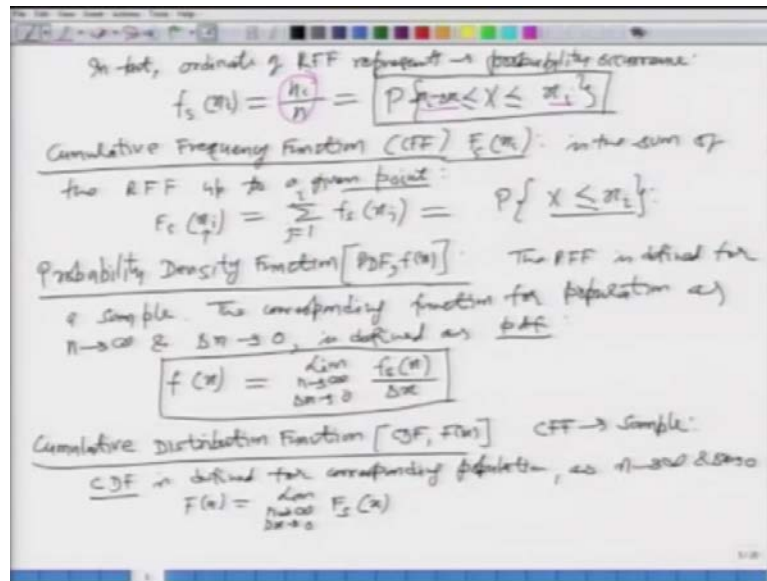 In fact, ordinate of RFF represent → probability occurrence:
f_s (x_i) = n_i / n = P{x_i-Δx ≤ X ≤ x_i}
Cumulative Frequency Function (CFF) F_s(x_i): is the sum of
the RFF up to a given point:
F_s (x_i) = Σ_{j=1}^{i} f_s (x_j) = P{ X ≤ x_i}:
Probability Density Function [PDF, f(x)]: The RFF is defined for
a sample. The corresponding function for population as
n→∞ & Δx→0, is defined as pdf:
f (x) = Lim_{n→∞ Δx→0} f_s(x) / Δx
Cumulative Distribution Function [CDF, F(x)] CFF → Sample:
CDF is defined for corresponding population, as n→∞ & Δx→0
F(x) = Lim_{n→∞ Δx→0} F_s (x)